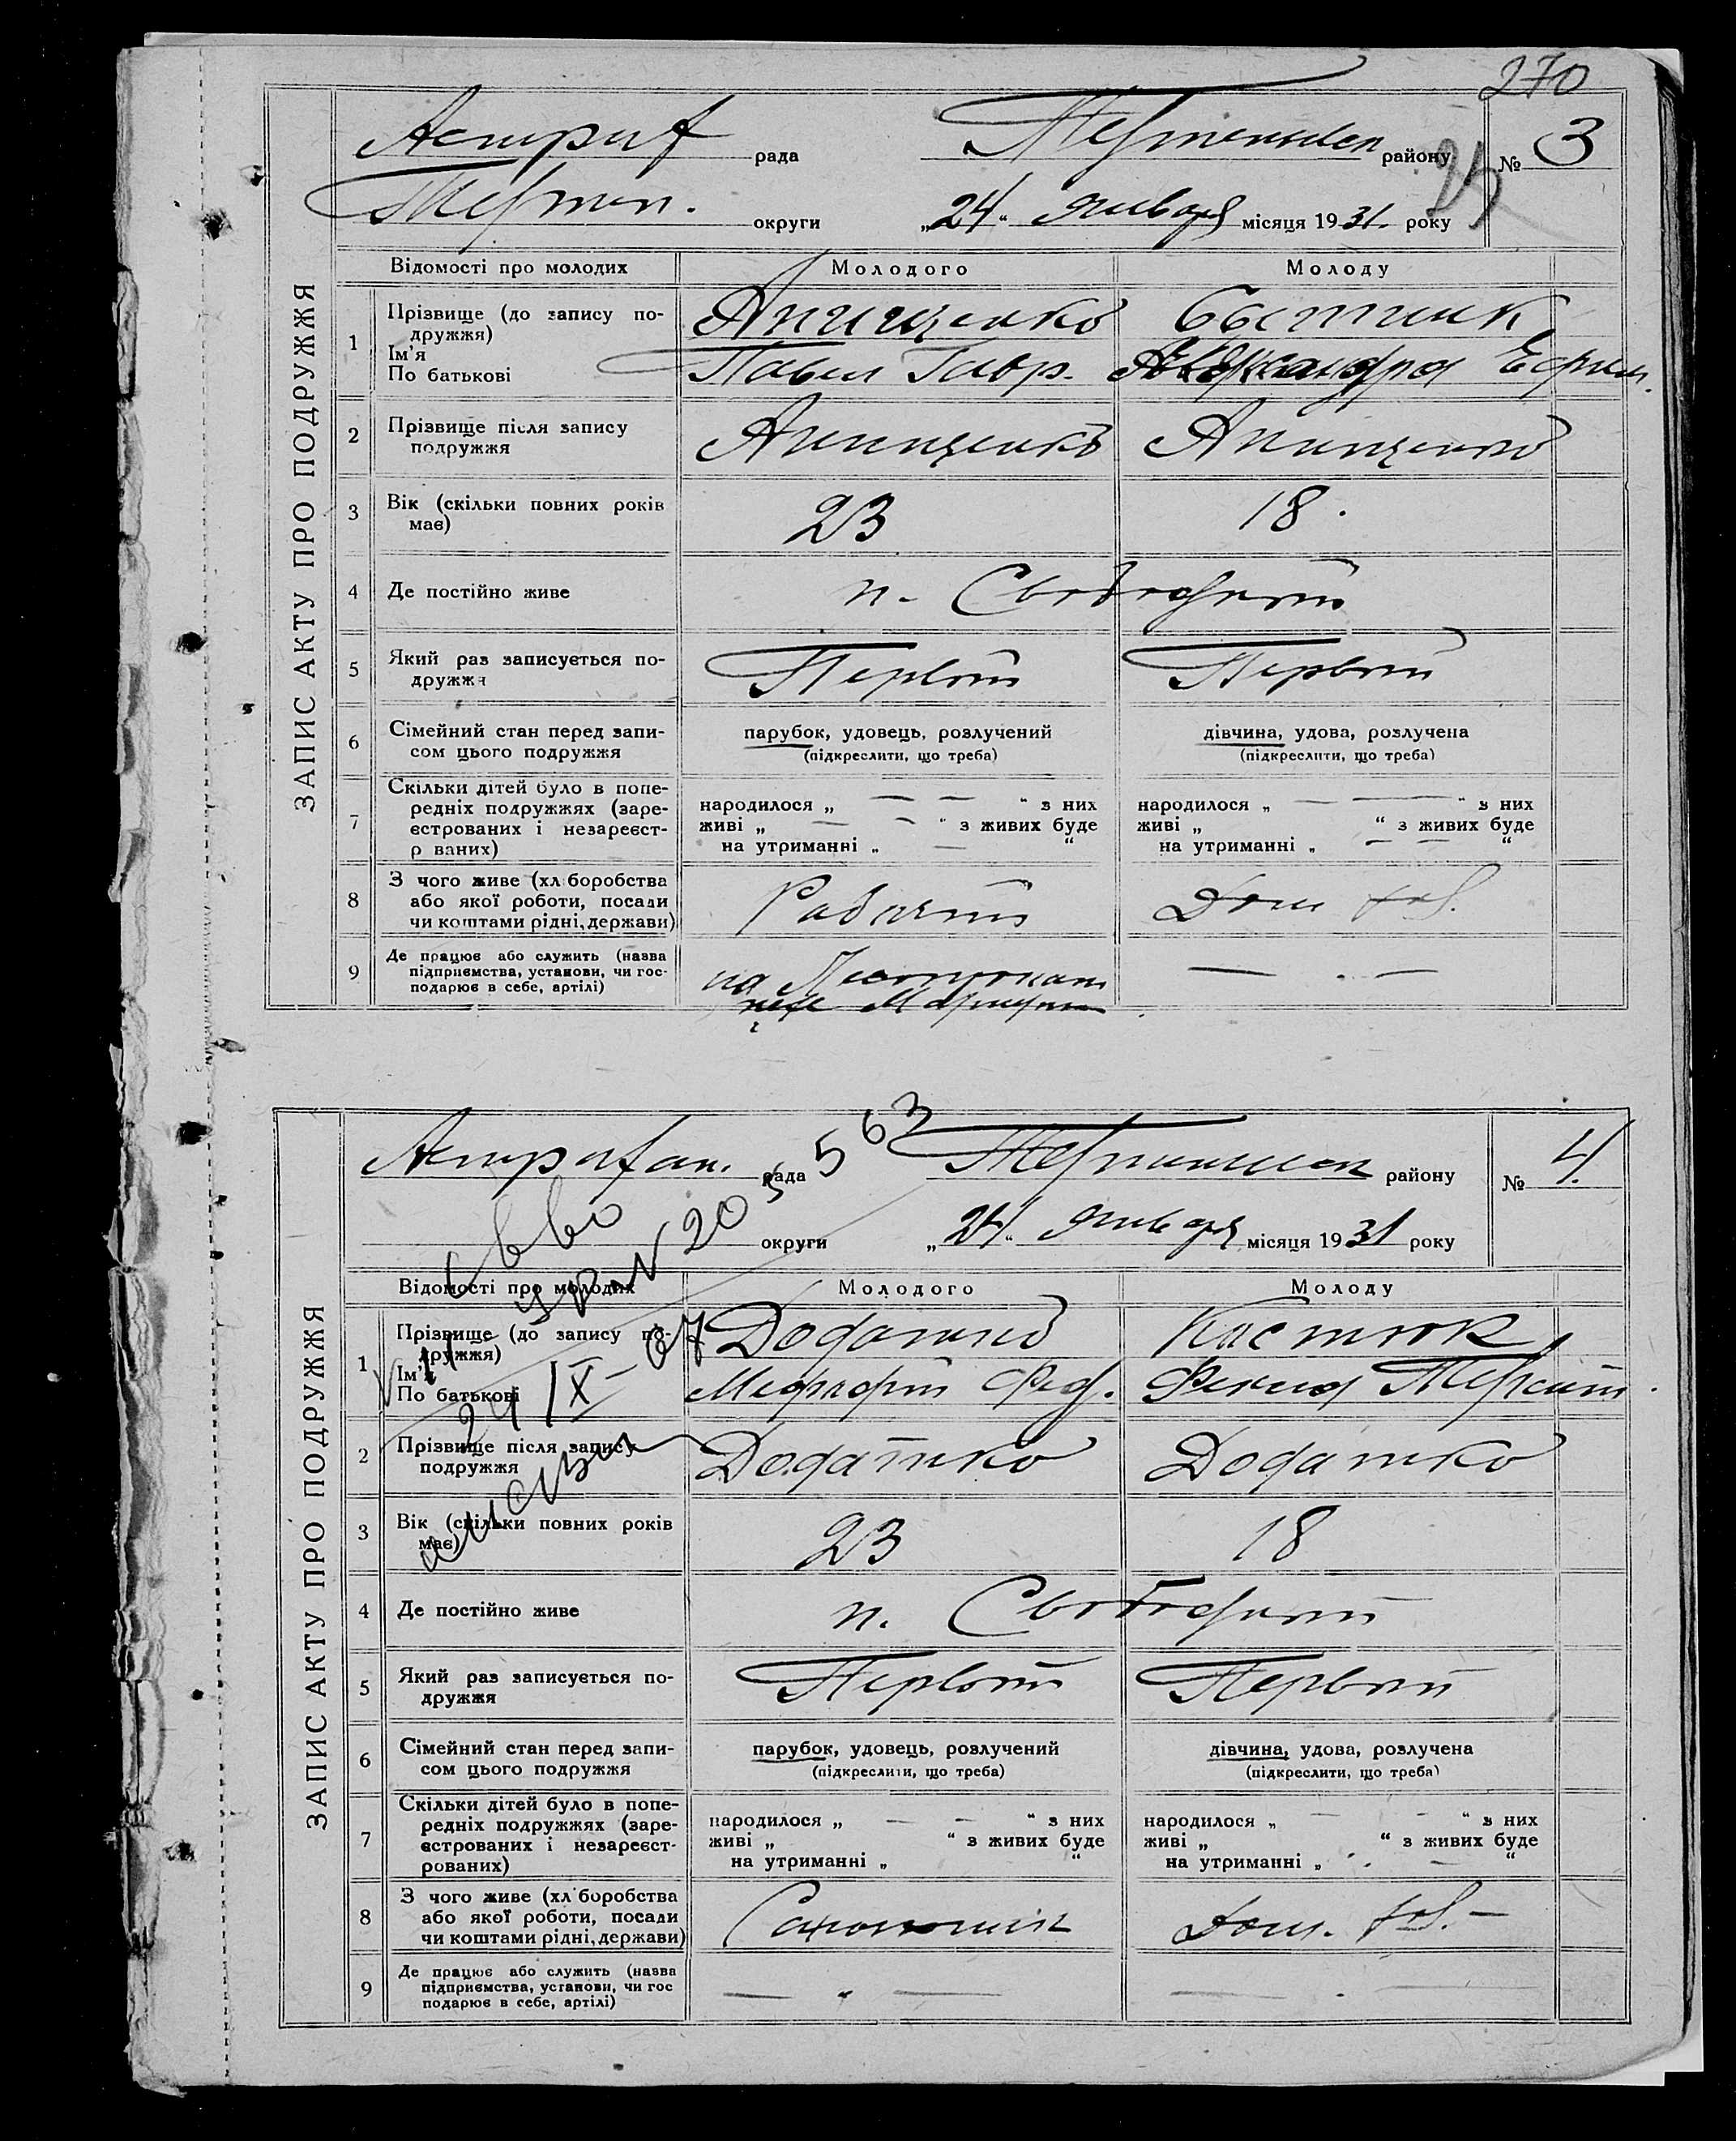 270
рада району № 3
25
округи „24“ января місяця 1931. року
ЗАПИС АКТУ ПРО ПОДРУЖЖЯ
Відомості про молодих Молодого Молоду
1 Прізвище (до запису по-
дружжя)
Ім'я
По батькові
Анищенко
Павел Гавр. Александра Ефрем.
2 Прізвище після запису
подружжя
Анищенко Анищенко
3 Вік (скільки повних років
має)
23 18.
4 Де постійно живе п. Свободный
5 Який раз записується по-
дружжя
Первый Первый
6 Сімейний стан перед запи-
сом цього подружжя
парубок, удовець, розлучений дівчина, удова, розлучена
(підкреслити, що треба) (підкреслити, що треба)
7 Скільки дітей було в попе-
редніх подружжях (заре-
єстрованих і незареєст-
р ваних)
народилося „ — — “ з них народилося „ — — “ з них
живі „ — - “ з живих буде живі „ “ з живих буде
на утриманні „ — “ на утриманні „ — — “
8 З чого живе (хл боробства
або якої роботи, посади
чи коштами рідні, держави)
Рабочий Дом хоз.
9 Де працює або служить (назва
підприємства, установи, чи гос-
подарює в себе, артілі)
на — . —
рада району № 4.
округи „24“ января місяця 1931 року
ЗАПИС АКТУ ПРО ПОДРУЖЖЯ
Відомості про молодих Молодого Молоду
1 Прізвище (до запису по-
дружжя)
Ім'я
По батькові
Додатко Костюк
Мефодий Фед.
2 Прізвище після запису
подружжя
Додатко Додатко
3 Вік (скільки повних років
має)
23 18
4 Де постійно живе п. Свободный
5 Який раз записується по-
дружжя
Первый Первый
6 Сімейний стан перед запи-
сом цього подружжя
парубок, удовець, розлучений дівчина, удова, розлучена
(підкреслити, що треба) (підкреслити, що треба)
7 Скільки дітей було в попе-
редніх подружжях (заре-
єстрованих і незареєст-
рованих)
народилося „ — — “ з них народилося „ — - “ з них
живі „ “ з живих буде живі „ “ з живих буде
на утриманні „ “ на утриманні „ — “
8 З чого живе (хл боробства
або якої роботи, посади
чи коштами рідні, держави)
Сапожник Дом. хоз. —
9 Де працює або служить (назва
підприємства, установи, чи гос
подарює в себе, артілі)
— " — — . —